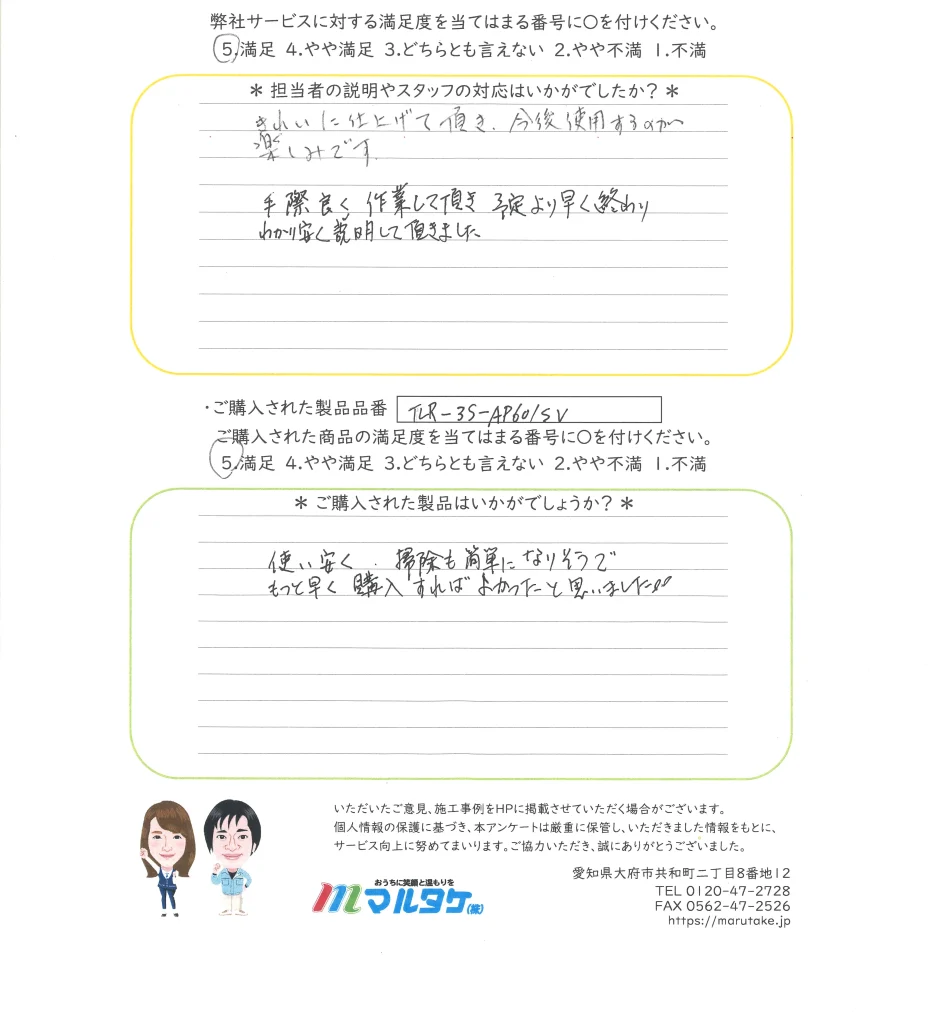 弊社サービスに対する満足度を当てはまる番号に〇を付けください。
5.満足 4.やや満足 3.どちらとも言えない 2.やや不満 1.不満
＊ 担当者の説明やスタッフの対応はいかがでしたか？ ＊
きれいに仕上げて頂き、今後使用するのが
楽しみです。
手際良く 作業して頂き 予定より早く終わり
わかり安く説明して頂きました
・ご購入された製品品番 TLR-3S-AP601SV
ご購入された商品の満足度を当てはまる番号に〇を付けください。
5.満足 4.やや満足 3.どちらとも言えない 2.やや不満 1.不満
＊ ご購入された製品はいかがでしょうか？ ＊
使い安く、掃除も簡単になりそうで
もっと早く購入すればよかったと思いました!!
いただいたご意見、施工事例をHPに掲載させていただく場合がございます。
個人情報の保護に基づき、本アンケートは厳重に保管し、いただきました情報をもとに、
サービス向上に努めてまいります。ご協力いただき、誠にありがとうございました。
愛知県大府市共和町二丁目8番地12
TEL 0120-47-2728
FAX 0562-47-2526
https://marutake.jp
おうちに笑顔と温もりを
マルタケ(株)